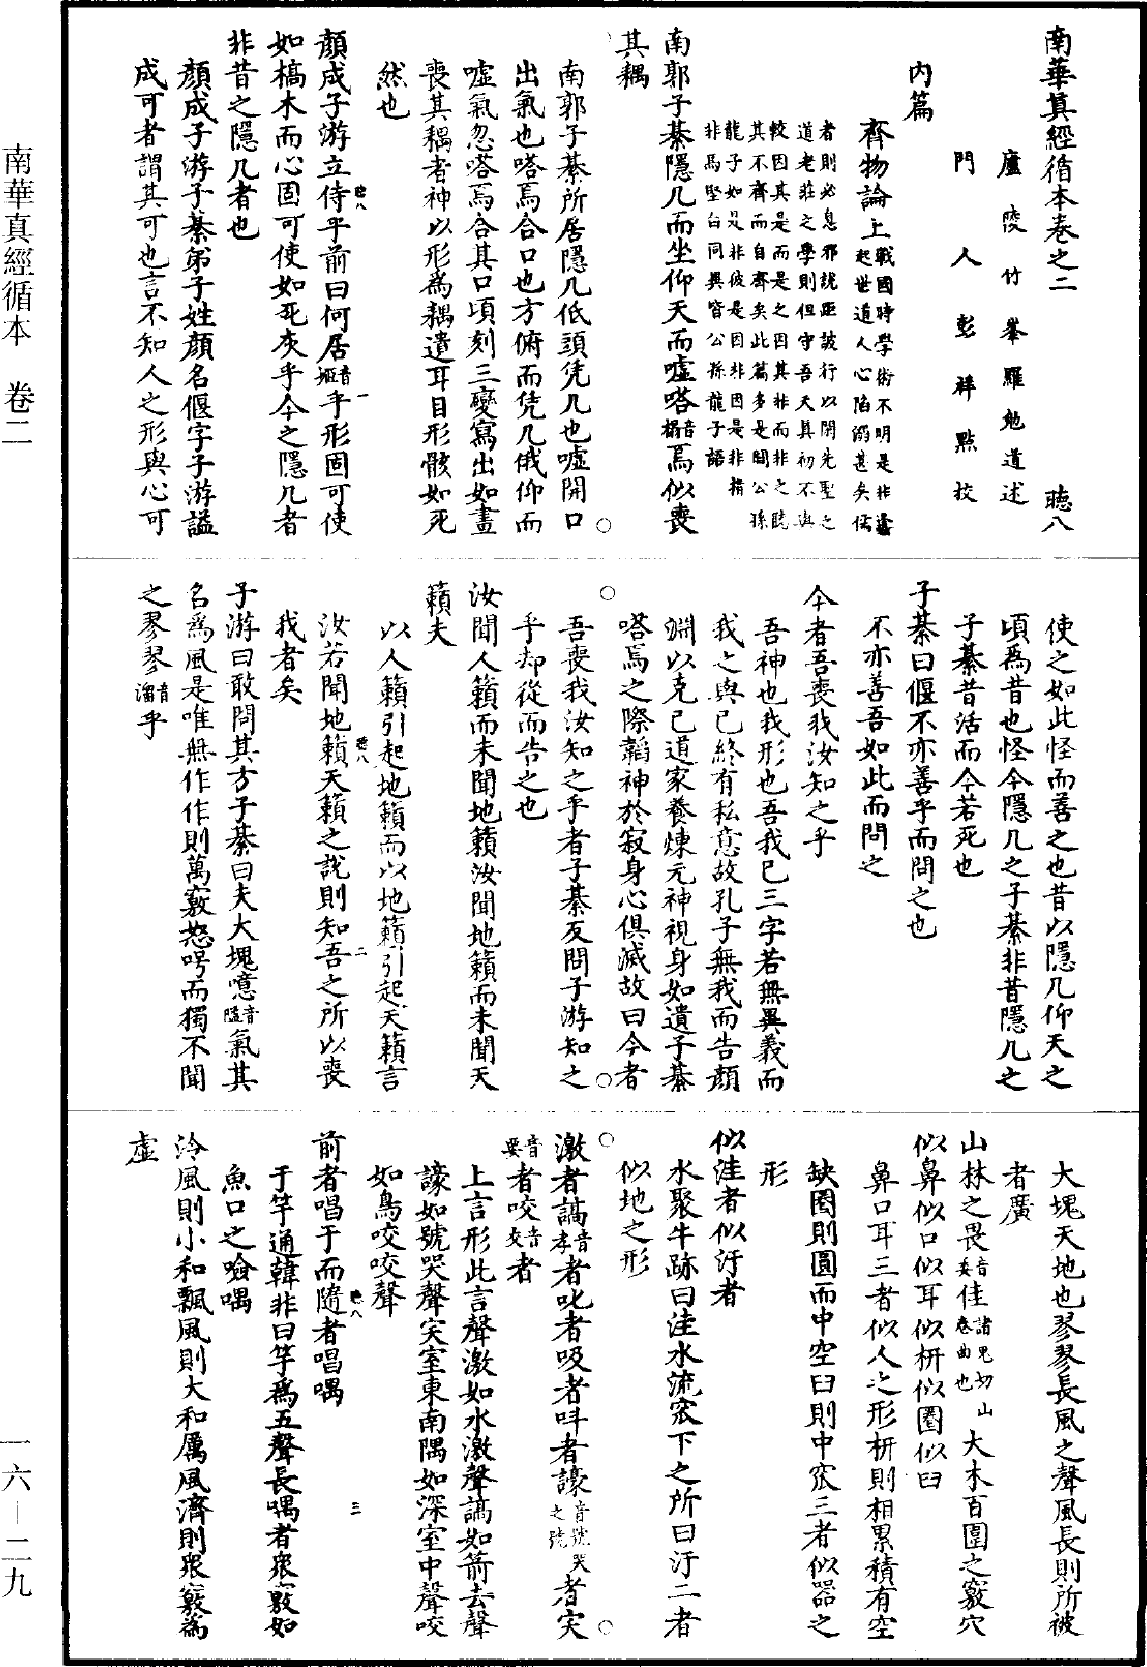 南華真經循本卷之二　聴八
廬陵竹峯羅勉道述
門人彭祥點校
內篇
齊物論上戰國時學術不明是非蠭起世道人心陷溺甚矣儒
者則必息邪說距詖行以閑先聖之
道老莊之學則但守吾天真初不與
較因其是而是之因其非而非之聴
其不齊而自齊矣此篇多是闢公孫
龍子如是非彼是因非因是非指
非馬堅白同異皆公孫龍子語
南郭子綦隱几而坐仰天而嘘嗒音榻焉似喪
其耦
南郭子綦所居隱几低頭凭几也嘘開口
出氣也嗒焉合口也方俯而凭几俄仰而
嘘氣忽嗒焉合其口頃刻三變寫出如畫
喪其耦者神以形爲耦遣耳目形骸如死
然也
顏成子游立侍乎前曰何居音姬乎形固可使
如槁木而心固可使如死灰乎今之隱几者
非昔之隱几者也
顏成子游子綦弟子姓顏名偃字子游謚
成可者謂其可也言不知人之形與心可
使之如此怪而善之也昔以隱几仰天之
頃爲昔也怪今隱几之子綦非昔隱几之
子綦昔活而今若死也
子綦曰偃不亦善乎而問之也
不亦善吾如此而問之
今者吾喪我汝知之乎
吾神也我形也吾我已三字若無異義而
我之與已終有私意故孔子無我而告顏
淵以克已道家養煉元神視身如遺子綦
嗒焉之際韜神於寂身心俱滅故曰今者
吾喪我汝知之乎者子綦反問子游知之
乎却從而告之也
汝聞人籟而未聞地籟汝聞地籟而未聞天
籟夫
以人籟引起地籟而以地籟引起天籟言
汝若聞地籟天籟之說則知吾之所以喪
我者矣
子游曰敢問其方子綦曰夫大塊噫音隘氣其
名爲風是唯無作作則萬竅怒呺而獨不聞
之翏翏音溜乎
大塊天地也翏翏長風之聲風長則所被
者廣
山林之畏音委佳諸鬼切山卷曲也大木百圍之竅穴
似鼻似口似耳似枅似圈似臼
鼻口耳三者似人之形枅則相累積有空
缺圈則圓而中空臼則中窊三者似器之
形
似洼者似汙者
水聚牛跡曰洼水流窊下之所曰汙二者
似地之形
激者謞音孝者叱者吸者呌者譹音號哭之號者宎
音要者咬音交者
上言形此言聲激如水激聲謞如箭去聲
譹如號哭聲宎室東南隅如深室中聲咬
如鳥咬咬聲
前者唱于而隨者唱喁
于竽通韓非曰竽爲五聲長喁者衆竅如
魚口之噞喁
泠風則小和飄風則大和厲風濟則衆竅爲
虛
聴八　一
聴八　二
聴八　三
南華真經循本　卷二
一六—二九